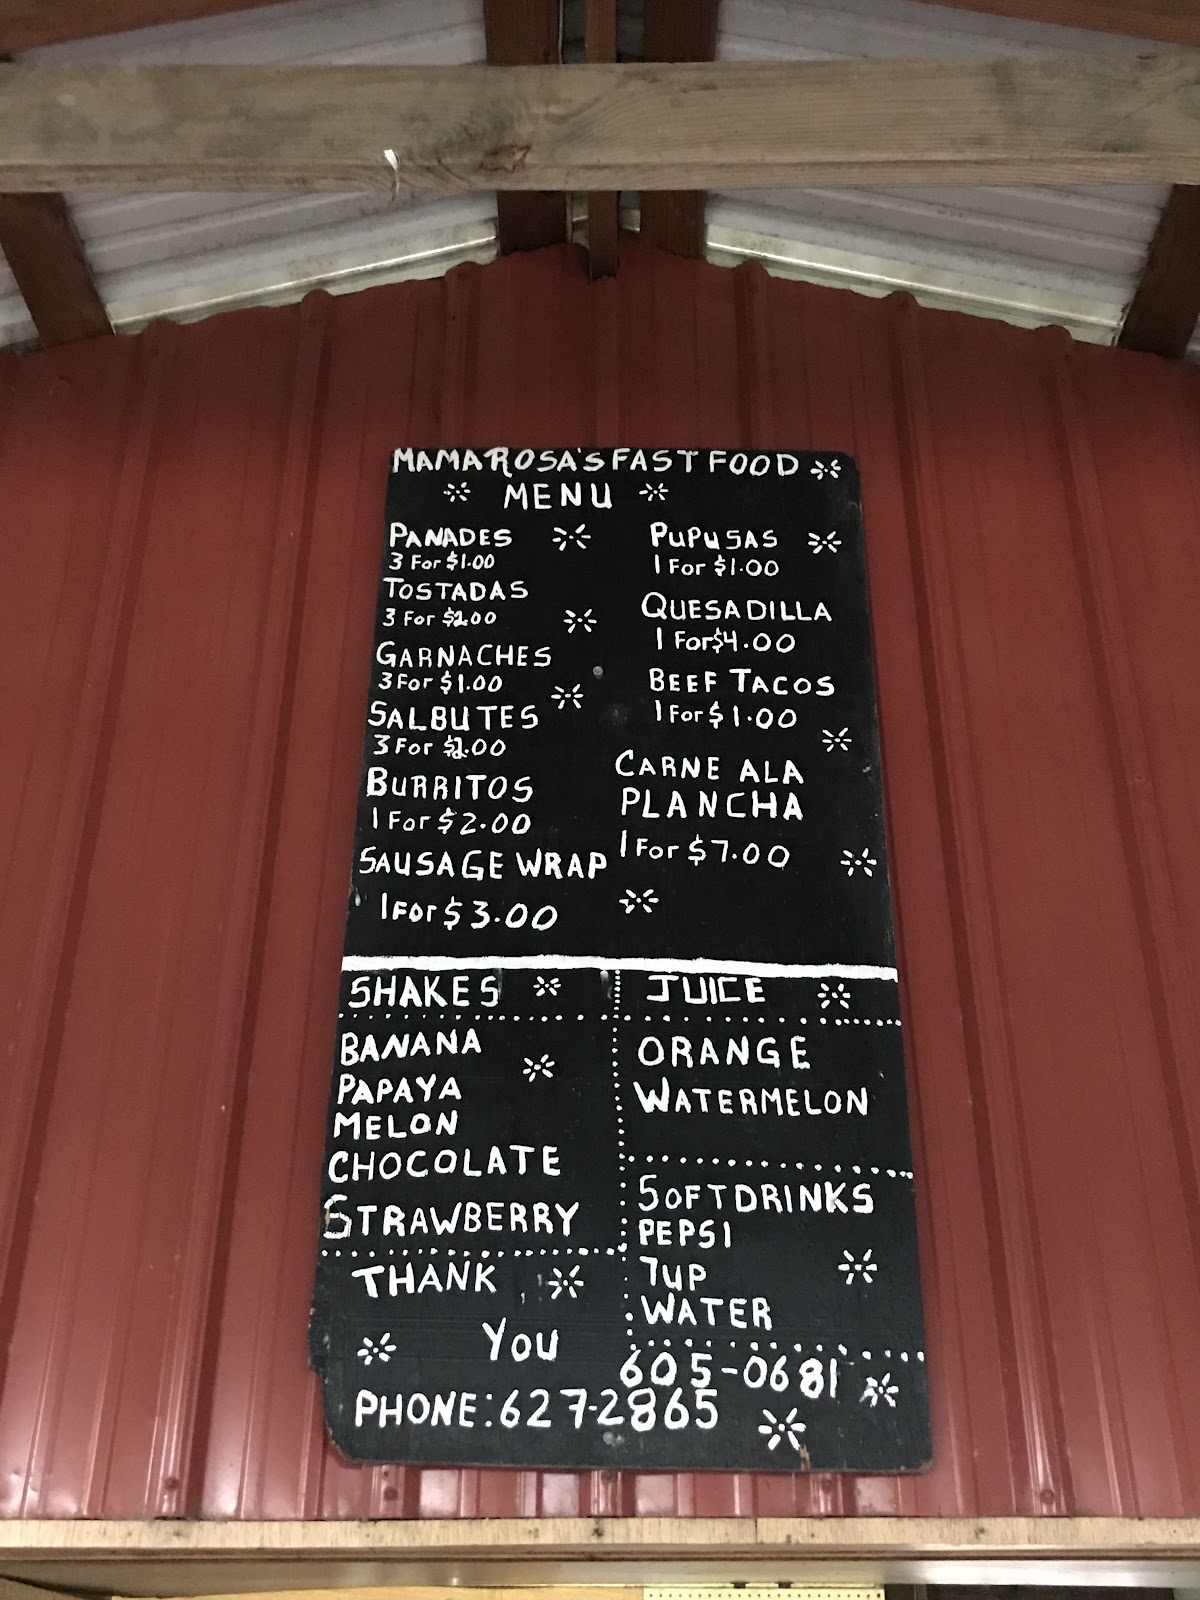 MAMA ROSA'S FAST FOOD
MENU
PANADES
3 For $1.00
TOSTADAS
3 For
GARNACHES
3 For $1.00
SALBUTES
3 For
BURRITOS
1 For $2.00
SAUSAGE WRAP
1 For $3.00
PUPUSAS
1 For $1.00
QUESADILLA
1 For $4.00
BEEF TACOS
1 For $1.00
CARNE ALA
PLANCHA
1 For $7.00
SHAKES
BANANA
PAPAYA
MELON
CHOCOLATE
STRAWBERRY
JUICE
ORANGE
WATERMELON
SOFT DRINKS
PEPSI
7UP
WATER
THANK
YOU
605-0681
PHONE: 627-2865